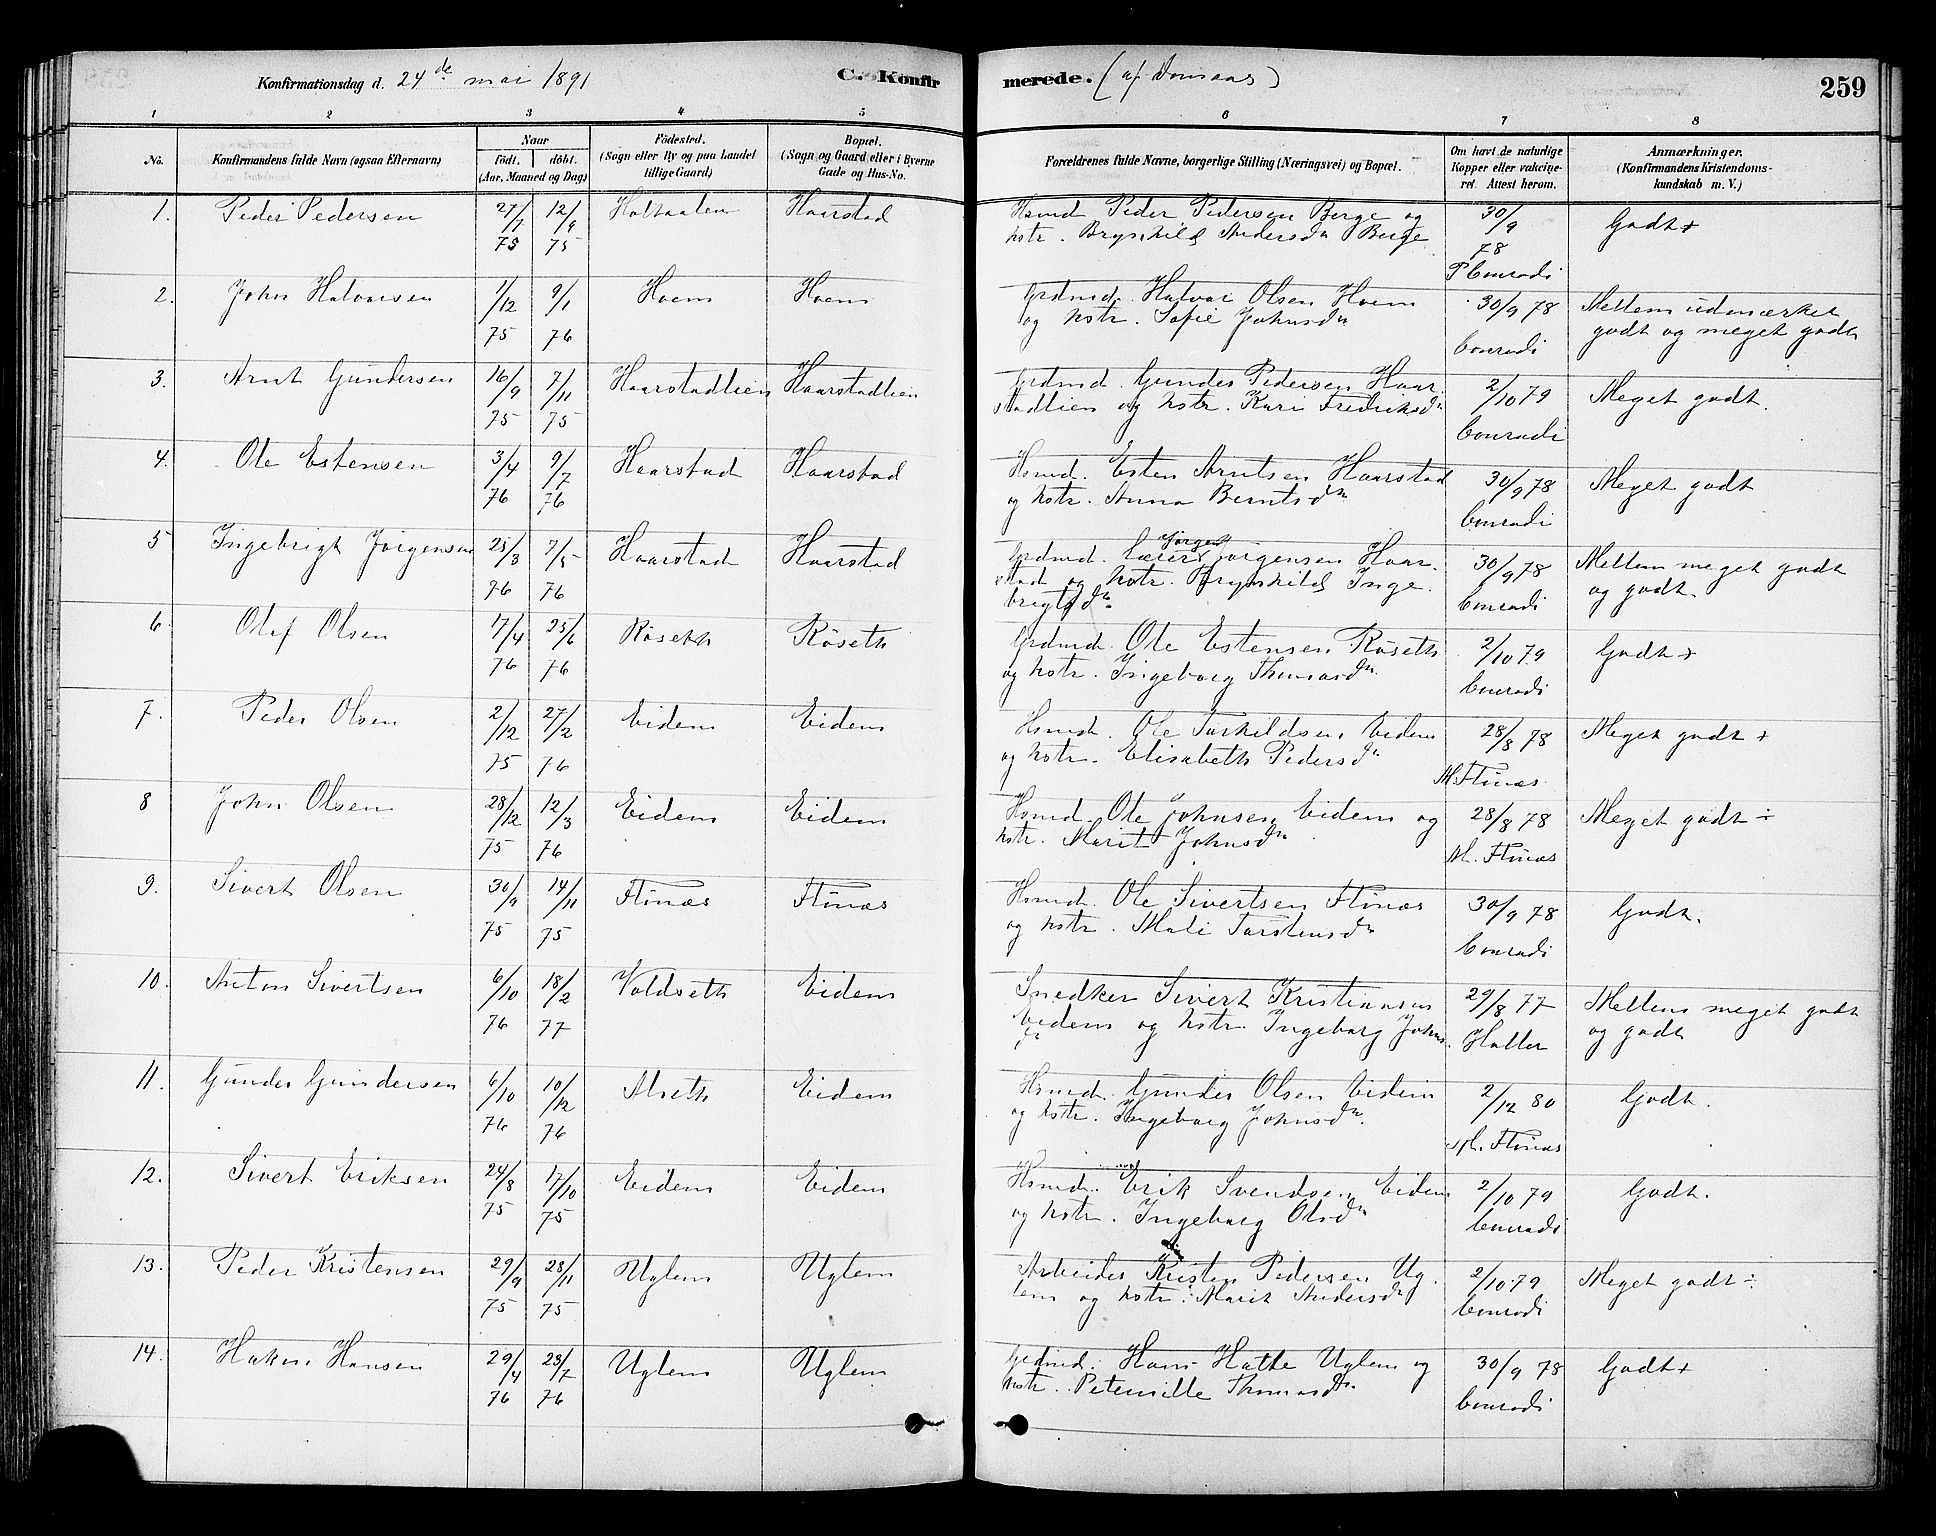 Konfirmationsdag d. 24de mai 1891 C. Konfir
merede. (af Domaas) 259
1 2 3 4 5 6 7 8
No. Konfirmandens fulde Navn (ogsaa Efternavn) Naar Födt. döbt. (Aar, Maaned og Dag) Födested. (Sogn eller By og paa Landet tillige Gaard) Bopæl. (Sogn og Gaard eller i Byerne Gade og Hus-No. Forældrenes fulde Navne, borgerlige Stilling (Næringsvei) og Bopæl. Om havt de naturlige Kopper eller vakcineret. Attest herom. Anmærkninger. (Konfirmandens Kristendomskundskab m. V.)
1. Peder Pedersen 27/7 75 12/9 75 Haltaalen Haarstad Hsmd Peder Pedersen Berge og
hstr. Brynhild Andersdn Berge 30/9 78 P Conradi Godt +
2. John Halvarsen 1/12 75 9/1 76 Hoem Hoem Grdmd. Halvar Olsen Hoem
og hstr. Sofie Johnsdn 30/9 78 Conradi Mellem udmærket
godt og meget godt
3. Arnt Gundersen 16/9 75 7/11 75 Haarstadlien Haarstadlien Grdmd. Gunder Pedersen Haar
stadlien og hstr. Kari Fredriksdn 2/10 79 Conradi Meget godt.
4. Ole Estensen 3/4 76 9/7 76 Haarstad Haarstad Hsmd. Esten Arntsen Haarstad
og hstr. Anna Berntsdn 30/9 78 Conradi Meget godt
5 Ingebrigt Jørgensen 25/3 76 7/5 76 Haarstad Haarstad Grdmd. Jørgen Jørgensen Haar
stad og hstr. Brynhild Inge
brigtsdn 30/9 78 Conradi Mellem meget godt
og godt.
6. Olaf Olsen 17/4 76 25/6 76 Røseth Røseth Grdmd. Ole Estensen Røseth
og hstr. Ingeborg Thomasdn 2/10 79 Conradi Godt +
7. Peder Olsen 2/12 75 27/2 76 Eidem Eidem Hsmd. Ole Tarkildsen Eidem
og hstr. Elisabeth Pedersdn 28/8 78 M. Flinæs Meget godt +
8 John Olsen 28/12 75 12/3 76 Eidem Eidem Hsmd. Ole Johnsen Eidem og
hstr. Marit Johnsdn 28/8 78 M. Flinæs Meget godt ÷
9. Sivert Olsen 30/9 75 14/11 75 Flinæs Flinæs Hsmd. Ole Sivertsen Flinæs
og hstr. Mali Tarstensdn 30/9 78 Conradi Godt.
10. Anton Sivertsen 6/10 76 18/2 77 Voldseth Eidem Snedker Sivert Kristiansen
Eidem og hstr. Ingeborg Johns
dn 29/8 77 Haller Mellem meget godt
og godt
11. Gunder Gundersen 6/10 76 10/12 76 Alseth Eidem Hsmd. Gunder Olsen Eidem
og hstr. Ingeborg Johnsdn. 2/12 80 M. Flinæs Godt.
12. Sivert Eriksen 24/8 75 17/10 75 Eidem Eidem Hsmd. Erik Svendsen Eidem
og hstr. Ingeborg Olsdn 2/10 79 Conradi Godt.
13. Peder Kristensen 29/9 75 28/11 75 Uglem Uglem Arbeider Kristen Pedersen Ug
lem og hstr. Marit Andersdn 2/10 79 Conradi Meget godt ÷
14. Haken Hansen 29/4 76 23/7 76 Uglem Uglem Grdmd. Hans Hatle Uglem og
hstr. Peternille Thomasdn. 30/9 78 Conradi Godt +